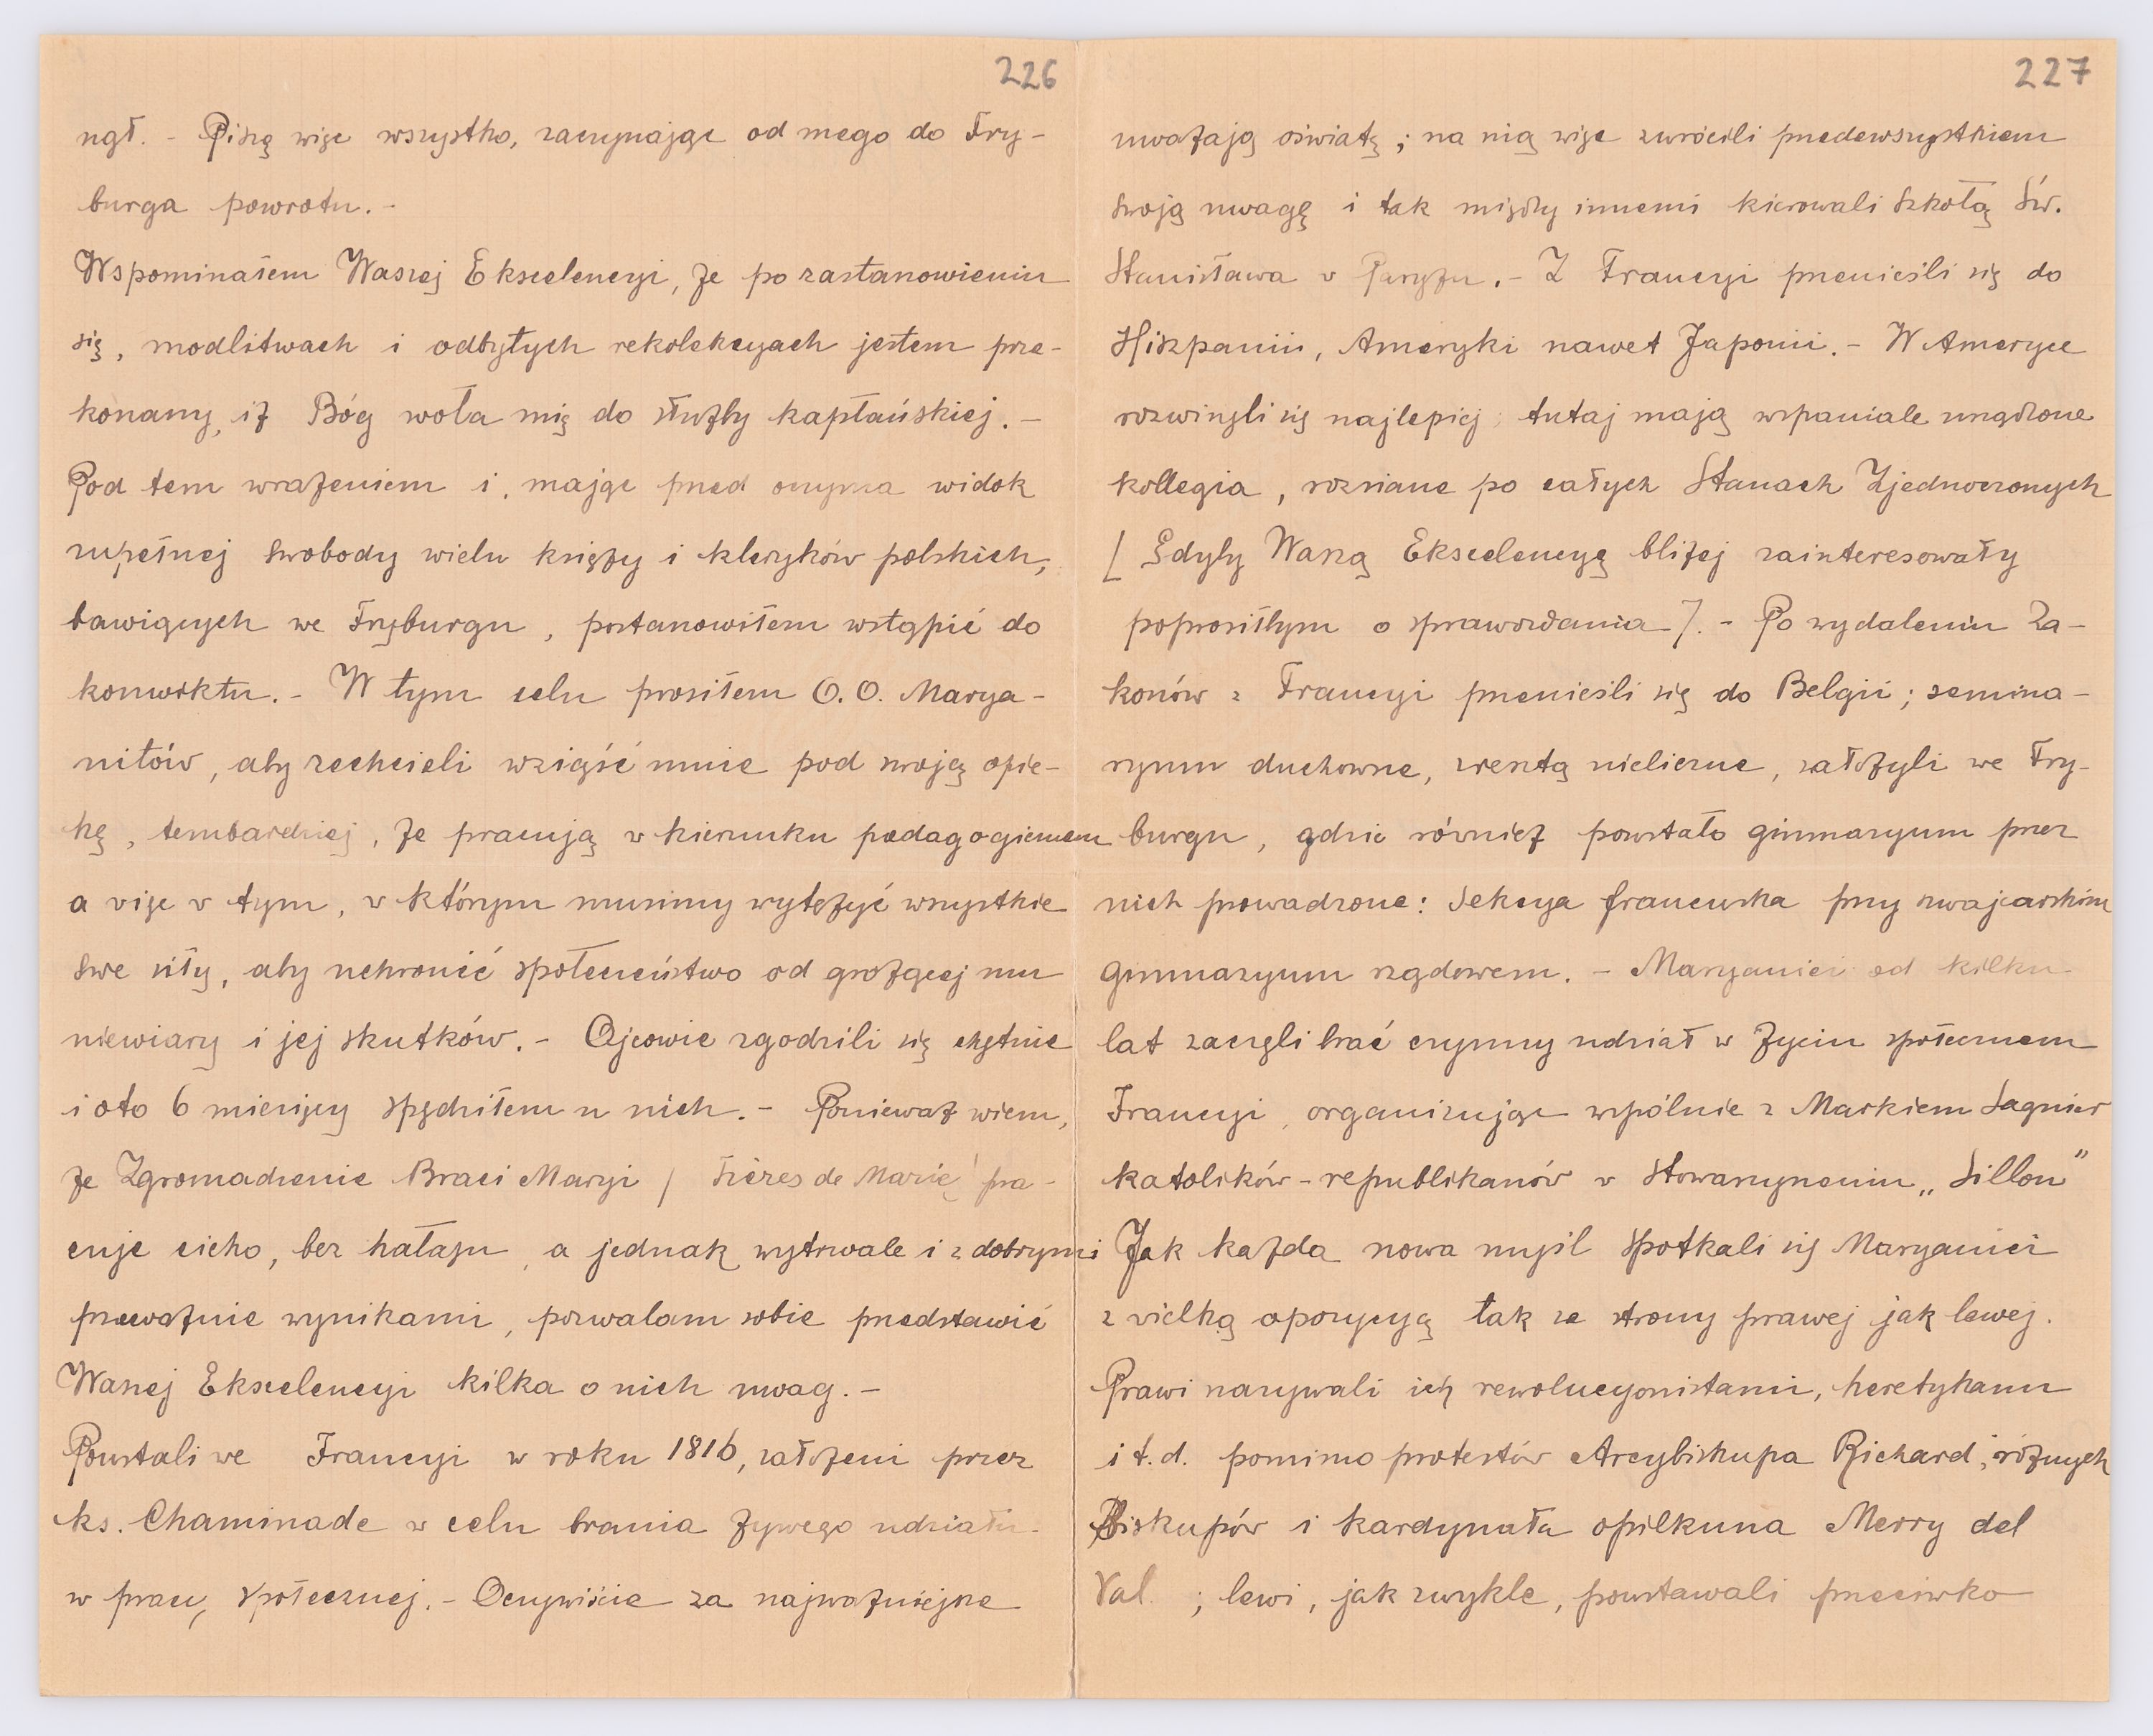 226
ngł. - Piszę więc wszystko, zaczynając od mego do Fry-
burga powrotu. -
Wspominałem Waszej Ekscelencyi, że po zastanowieniu
się, modlitwach i odbytych rekolekcyach jestem prze-
konany, iż Bóg woła mię do służby kapłańskiej. -
Pod tem wrażeniem i, mając przed oczyma widok
zupełnej swobody wielu księży i kleryków polskich,
bawiących we Fryburgu, postanowiłem wstąpić do
konwiktu. - W tym celu prosiłem O.O. Marya-
nitów, aby zechcieli wziąść mnie pod swoją opie-
kę, tembardziej, że pracują w kierunku pedagogicznem
a więc w tym, w którym musimy wytężyć wszystkie
swe siły, aby uchronić społeczeństwo od grożącej mu
niewiary i jej skutków. - Ojcowie zgodzili się chętnie
i oto 6 miesięcy spędziłem u nich. - Ponieważ wiem,
że Zgromadzenie Braci Maryi / Frères de Marie / pra-
cuje cicho, bez hałasu, a jednak wytrwale i z dobrymi
przeważnie wynikami, pozwalam sobie przedstawić
Waszej Ekscelencyi kilka o nich uwag. -
Powstali we Francyi w roku 1816, założeni przez
ks. Chaminade w celu brania żywego udziału
w pracy społecznej. - Oczywiście za najważniejsze
227
uważają oświatę; na nią więc zwrócili przedewszystkiem
swoją uwagę i tak między innemi kierowali Szkołą Św.
Stanisława w Paryżu. - Z Francyi przenieśli się do
Hiszpanii, Ameryki nawet Japonii. - W Ameryce
rozwinęli się najlepiej; tutaj mają wspaniale urządzone
kollegia, rozsiane po całych Stanach Zjednoczonych
[ Gdyby Waszą Ekscelencyę bliżej zainteresowały
poprosiłbym o sprawozdania ]. - Po wydaleniu Za-
konów z Francyi przenieśli się do Belgii; semina-
ryum duchowne, zresztą nieliczne, założyli we Fry-
burgu, gdzie również powstało gimnazyum przez
nich prowadzone: Sekcya francuska przy szwajcarskim
gimnazyum rządowem. - Maryanici od kilku
lat zaczęli brać czynny udział w życiu społecznem
Francyi, organizując wspólnie z Markiem Sagnier
katolików-republikanów w stowarzyszeniu „Sillon”
Jak każda nowa myśl spotkali się Maryanici
z wielką opozycyą tak ze strony prawej jak lewej.
Prawi nazywali ich rewolucyonistami, heretykami
i t.d. pomimo protestów Arcybiskupa Richard, różnych
Biskupów i kardynała opiekuna Merry del
Val ; lewi, jak zwykle, powstawali przeciwko